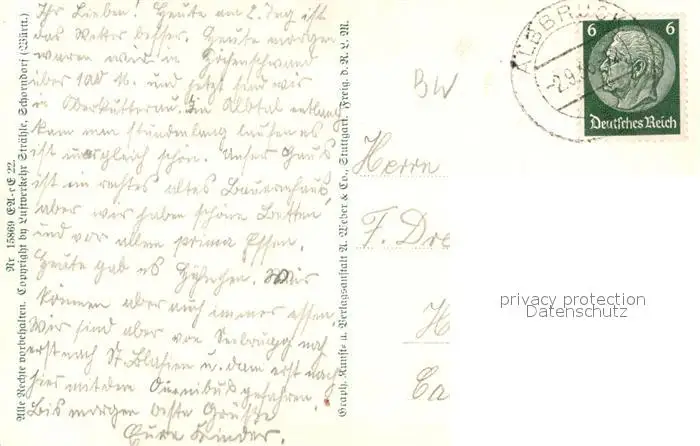 Ihr Lieben! Heute am 2. Tag ist
das Wetter besser. Heute morgen
waren wir in Höchenschwand
über 1000 M. und jetzt sind wir
in Oberkutterau. Im Albtal entlang
kann man stundenlang laufen es
ist unvergleich schön. Unser Haus
ist ein rechtes altes Bauernhaus,
aber wir haben schöne Betten
und vor allem prima Essen.
Heute gab es Hühnchen. Wir
können aber auch immer essen.
Wir sind aber von Seebrugg nach
erst nach St. Blasien u. dann erst nach
hier mit dem Omnibus gefahren.
Bis morgen beste Grüsse
Eure Kinder.
Nr 15869 EA-rE 22.
Alle Rechte vorbehalten. Copyright by Luftverkehr Strähle, Schorndorf (Württ.)
Graph. Kunst- u. Verlagsanstalt A. Weber & Co., Stuttgart. Freig. d. R. L. M.
BW
ALBBRUCK
-2.9.
6 6
Deutsches Reich
Herrn
F. Dre
H
Ca
privacy protection
Datenschutz